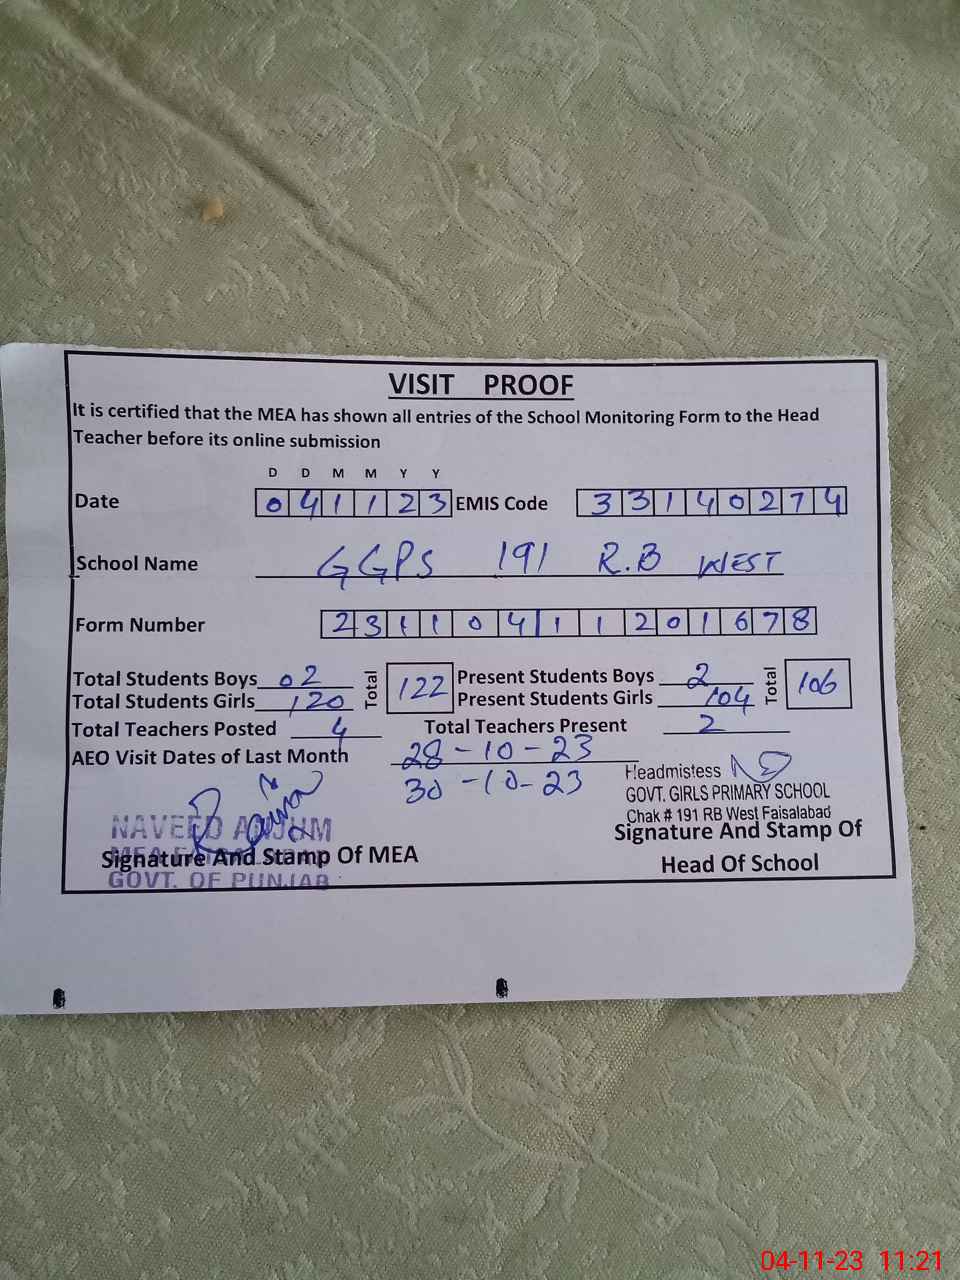 VISIT PROOF
It is certified that the MEA has shown all entries of the School Monitoring Form to the Head
Teacher before its online submission
D D M M Y Y
Date 0 4 1 1 2 3 EMIS Code 3 3 1 4 0 2 7 4
School Name GGPS 191 R.B WEST
Form Number 2 3 1 1 0 4 1 1 2 0 1 6 7 8
Total Students Boys 02 Total 122 Present Students Boys 2 Total 106
Total Students Girls 120 Present Students Girls 104
Total Teachers Posted 4 Total Teachers Present 2
AEO Visit Dates of Last Month 28-10-23
30-10-23
Headmistess
GOVT. GIRLS PRIMARY SCHOOL
Chak # 191 RB West Faisalabad
NAVEED ANJUM
Signature And Stamp Of MEA
GOVT. OF PUNJAB
Signature And Stamp Of
Head Of School
04-11-23 11:21